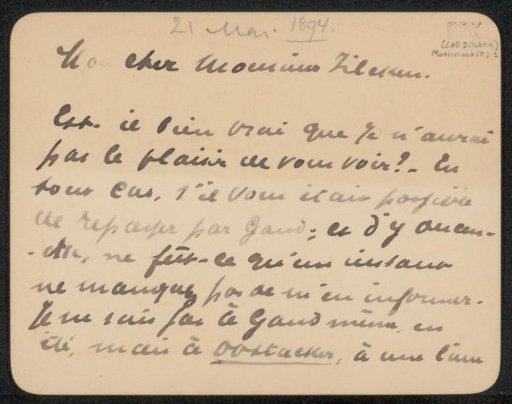 21 Mai. 1894.
(Coll Zilcken)
Maeterlinck (M): 2
Mon cher Monsieur Zilcken.
Est-il bien vrai que je n'aurai
pas le plaisir de vous voir? - En
tous cas, s'il vous était possible
de repasser par Gand; et d'y
ne fût-ce qu'un instant
ne manquez pas de m'en informer.
Je ne suis pas à Gand même, en
été, mais à Oostacker, à une lieue